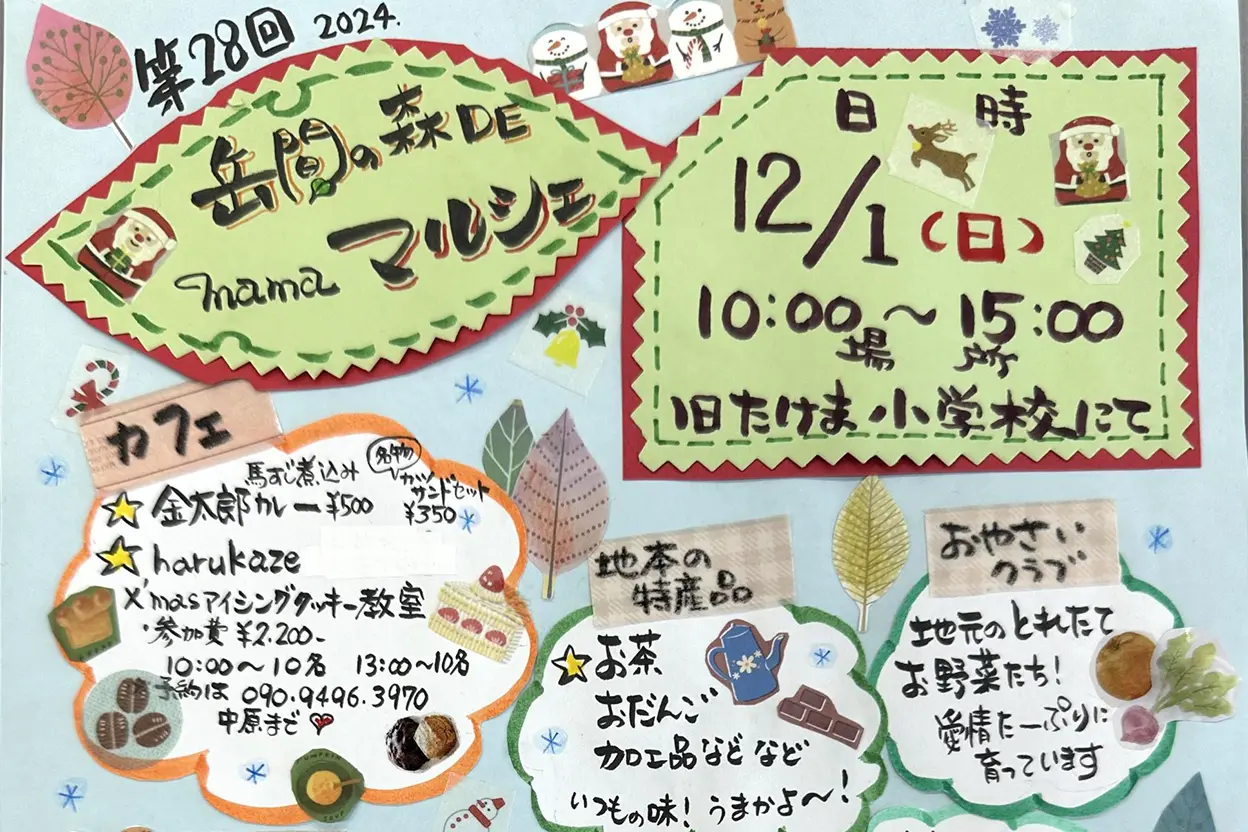 第28回 2024.
岳間の森DE
mamaマルシェ
日時
12/1(日)
10:00〜15:00
場所
旧たけま小学校にて
カフェ
馬すじ煮込み
金太郎カレー¥500
名物
カツサンドセット
¥350
harukaze
X'masアイシングクッキー教室
・参加費¥2.200-
10:00〜10名 13:00〜10名
予約は 090.9496.3970
中原まで
地本の
特産品
お茶
おだんご
加工品などなど
いつもの味！うまかよ〜！
おやさい
クラブ
地元のとれたて
お野菜たち！
愛情たーぷりに
育っています